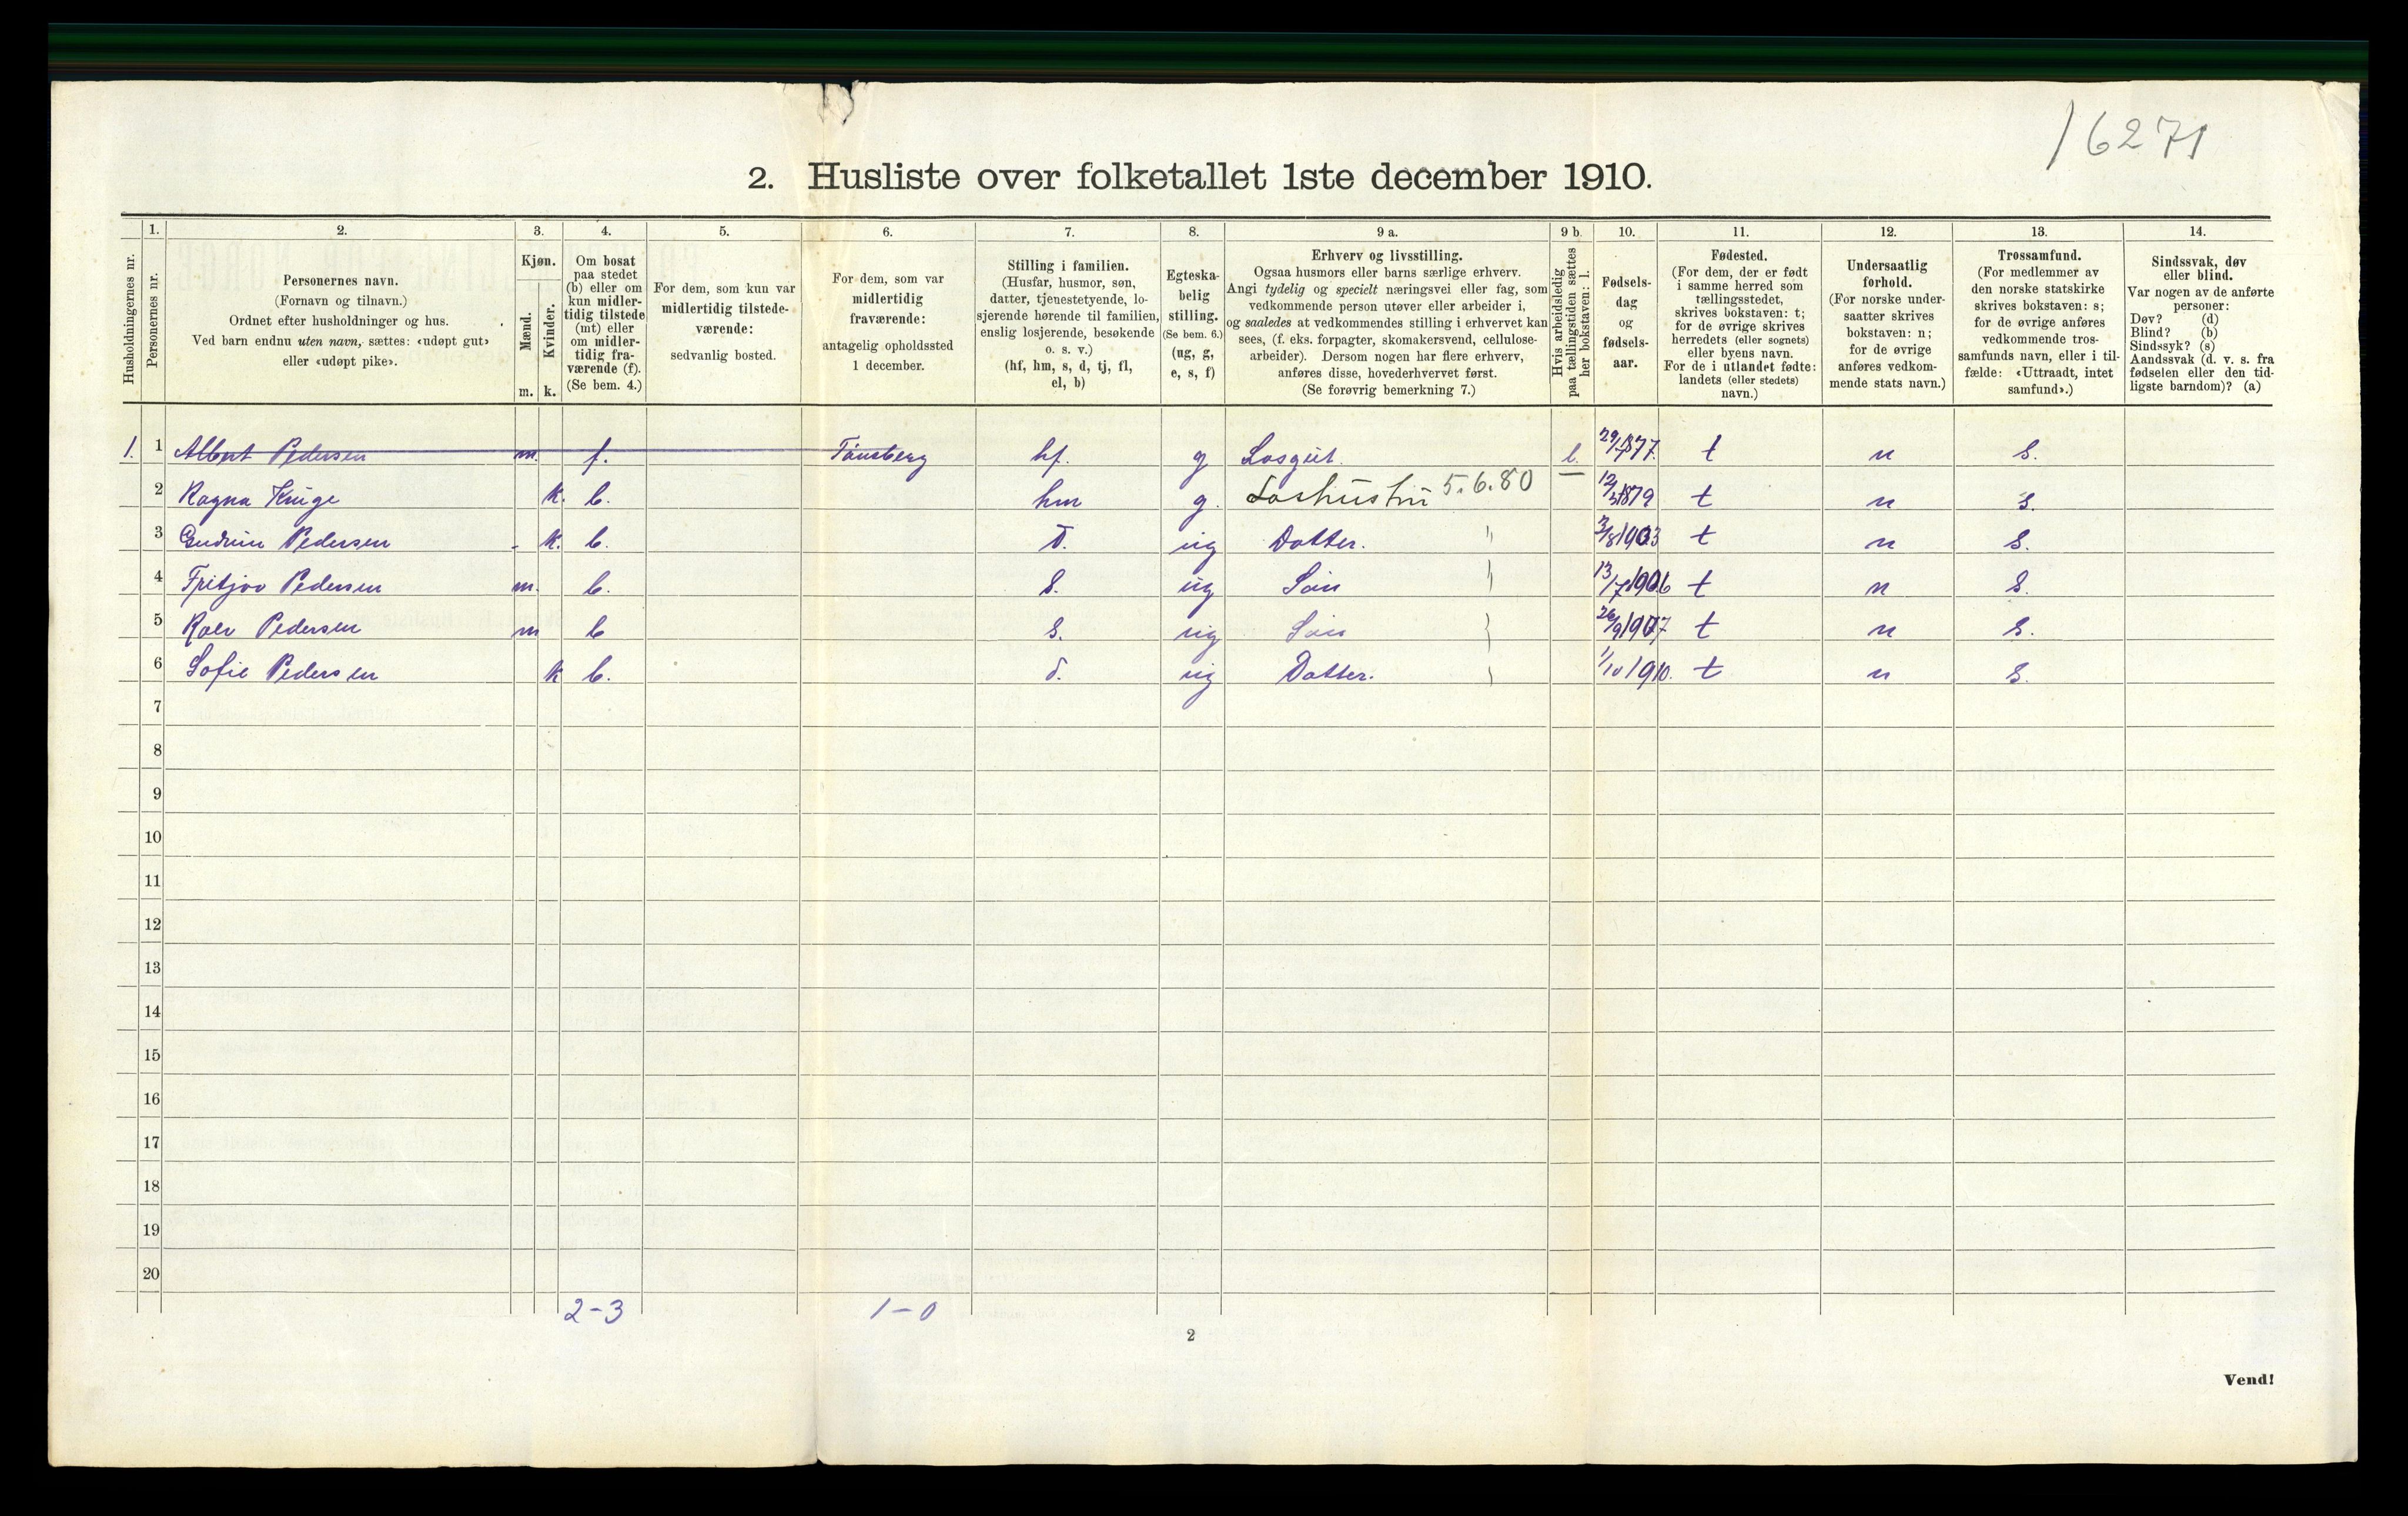 16271
2. Husliste over folketallet 1ste december 1910.
Husholdningernes nr.
1.
Personernes nr.
2.
Personernes navn.
(Fornavn og tilnavn.)
Ordnet efter husholdninger og hus.
Ved barn endnu uten navn, sættes: «udøpt gut»
eller «udøpt pike».
3.
Kjøn.
Mænd.
Kvinder.
m. k.
4.
Om bosat
paa stedet
(b) eller om
kun midler-
tidig tilstede
(mt) eller
om midler-
tidig fra-
værende (f).
(Se bem. 4.)
5.
For dem, som kun var
midlertidig tilstede-
værende:
sedvanlig bosted.
6.
For dem, som var
midlertidig
fraværende:
antagelig opholdssted
1 december.
7.
Stilling i familien.
(Husfar, husmor, søn,
datter, tjenestetyende, lo-
sjerende hørende til familien,
enslig losjerende, besøkende
o. s. v.)
(hf, hm, s, d, tj, fl,
el, b)
8.
Egteska-
belig
stilling.
(Se bem. 6.)
(ug, g,
e, s, f)
9 a.
Erhverv og livsstilling.
Ogsaa husmors eller barns særlige erhverv.
Angi tydelig og specielt næringsvei eller fag, som
vedkommende person utøver eller arbeider i,
og saaledes at vedkommendes stilling i erhvervet kan
sees, (f. eks. forpagter, skomakersvend, cellulose-
arbeider). Dersom nogen har flere erhverv,
anføres disse, hovederhvervet først.
(Se forøvrig bemerkning 7.)
9 b.
Hvis arbeidsledig
paa tællingstiden sættes
her bokstaven: l.
10.
Fødsels-
dag
og
fødsels-
aar.
11.
Fødested.
(For dem, der er født
i samme herred som
tællingsstedet,
skrives bokstaven: t;
for de øvrige skrives
herredets (eller sognets)
eller byens navn.
For de i utlandet fødte:
landets (eller stedets)
navn.)
12.
Undersaatlig
forhold.
(For norske under-
saatter skrives
bokstaven: n;
for de øvrige
anføres vedkom-
mende stats navn.)
13.
Trossamfund.
(For medlemmer av
den norske statskirke
skrives bokstaven: s;
for de øvrige anføres
vedkommende tros-
samfunds navn, eller i til-
fælde: «Uttraadt, intet
samfund».)
14.
Sindssvak, døv
eller blind.
Var nogen av de anførte
personer:
Døv? (d)
Blind? (b)
Sindssyk? (s)
Aandssvak (d. v. s. fra
fødselen eller den tid-
ligste barndom)? (a)
1. 1 Albert Pedersen m. f. Tønsberg hf. g Losgut. l. 29/1 1877. t n s.
2 Ragna Kruge k. b. hm g. Loshustru 5.6.80 12/3 1879 t n s.
3 Gudrun Pedersen k. b. d. ug Datter. " 2/8 1903 t n s.
4 Fritjov Pedersen m. b. s. ug Søn 13/7 1906 t n s.
5 Rolv Pedersen m b s. ug Søn 26/9 1907 t n s.
6 Sofie Pedersen k b. d. ug Datter. 1/10 1910. t n s.
7
8
9
10
11
12
13
14
15
16
17
18
19
20
2-3 1-0
2
Vend!